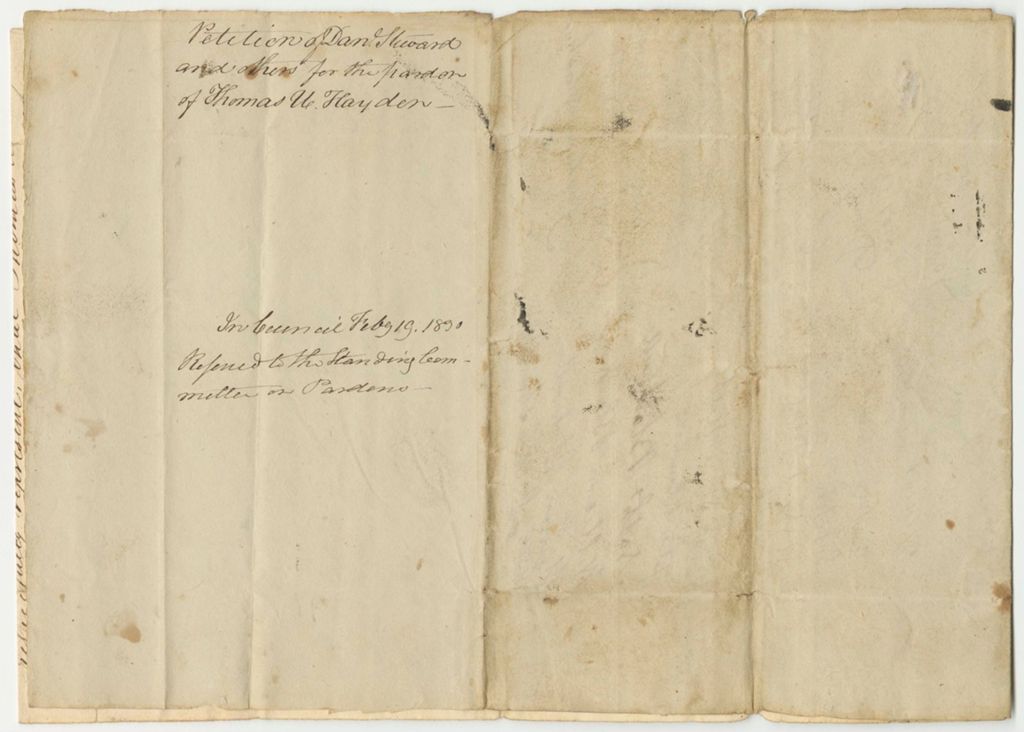 Petition of Danl Steward
and others for the pardon
of Thomas W. Hayden —
In Council Feby 19. 1830
Referred to the Standing Com-
mittee on Pardons —
represent, that Thomas